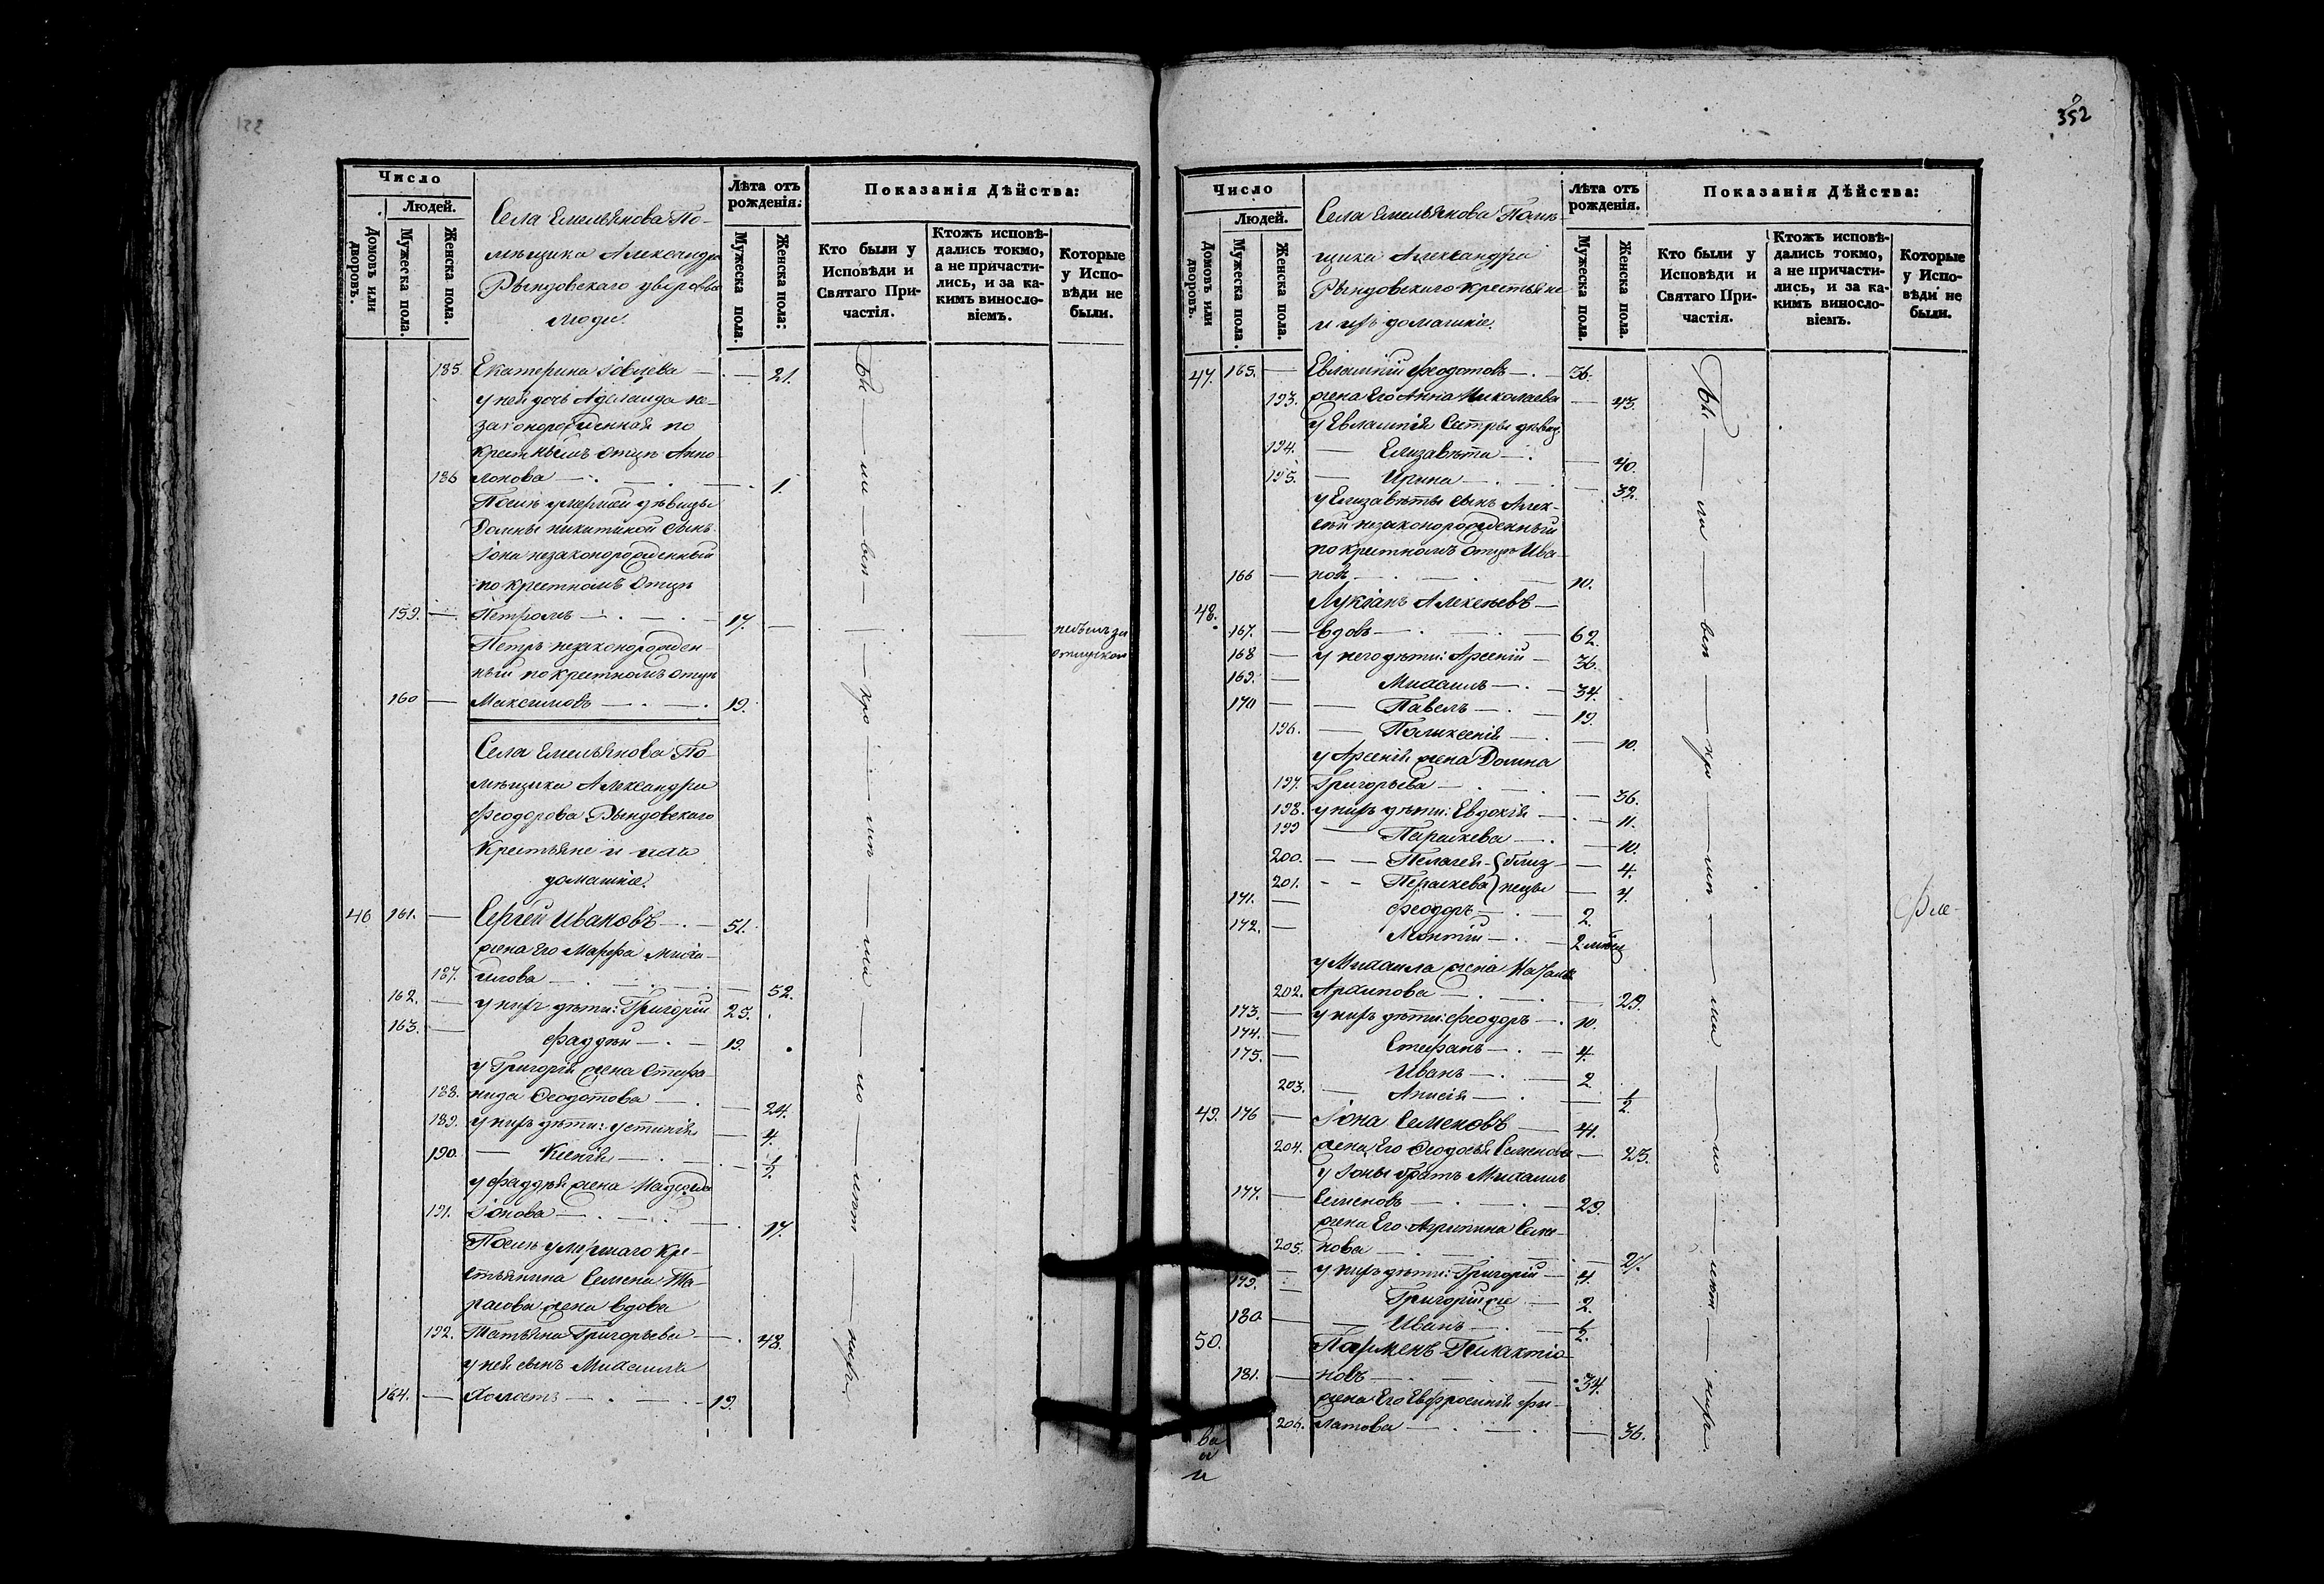 Число
Людей.
Домовъ или дворовъ.
Мужеска пола.
Женска пола.
Села Емельянова По-
мѣщика Александра
Рындовскаго дворовые
люди.
Лѣта отъ рожденія:
Мужеска пола.
Женска пола:
Показанія Дѣйства:
Кто были у Исповѣди и Святаго При-частія.
Ктожъ исповѣ-дались токмо, а не причасти-лись, и за ка-кимъ винословіемъ.
Которые у Испо-вѣди не были.
185. Екатерина Іовлева — 21.
у ней дочь Аделаида не-
законорожденная по
крестнымъ отцѣ Аппо-
186 лонова — 1.
Послѣ умершей дѣвицы
Домны Никитиной сынъ
Іона незаконорожденный
по крестномъ отцѣ
159. — Петромъ — 17. —
Петръ незаконорожден-
ный по крестномъ отцѣ
160 — Максимовъ — 19.
Села Емельянова По-
мѣщика Александра
Феодорова Рындовскаго
Крестьяне и ихъ
домашніе.
46 161. — Сергей Ивановъ — 51.
жена Его Марфа Михаи-
187. лова — 52.
162. — у нихъ дѣти: Григорій 25.
163. — Фаддѣй — 19.
у Григорія жена Стефа-
188. нида Ѳеодотова — 24.
189. у нихъ дѣти: Устинія — 4.
190. — Ксенія — 1/2.
у Фаддѣя жена Надежда
191. Іонова — 17.
Послѣ умершаго Кре-
стьянина Семена Та-
расова жена вдова
192. Татьяна Григорьева — 48.
у ней сынъ Михаилъ
164. — Холостъ — 19.
352
Число
Людей.
Домовъ или дворовъ.
Мужеска пола.
Женска пола.
Села Емельянова Помѣ-
щика Александра
Рындовскаго крестьяне
и ихъ домашніе.
Лѣта отъ рожденія.
Мужеска пола
Женска пола
Показанія Дѣйства:
Кто были у Исповѣди и Святаго При-частія.
Ктожъ исповѣ-дались токмо, а не причасти-лись, и за ка-кимъ винословіемъ.
Которые у Испо-вѣди не были.
47. 165. — Евлампій Феодотовъ — 36.
193. жена Его Анна Николаева — 43.
у Евлампія Сестры дѣвицы
194. — Елизавѣта — 40.
195. — Ирина — 32.
у Елизавѣты сынъ Алек-
сѣй незаконорожденный
по крестномъ отцѣ Ива-
166 — новъ — 10.
48. Лукіанъ Алексѣевъ —
167. — вдовъ — 62.
168 — у него дѣти: Арсеній — 36.
169. — Михаилъ — 34.
170 — Павелъ — 19.
196. — Поликсенія — 10.
у Арсенія жена Домна
197. Григорьева — 36.
198. у нихъ дѣти: Евдокія — 11.
199 — Параскева — 10.
200. — Пелагея } близ- — 4.
201. — Параскева } нецы — 4.
171. — Феодоръ — 2.
172. — Леонтій — 2 мѣсец
у Михаила жена Наталья
202. Архипова — 29.
173. — у нихъ дѣти: Феодоръ — 10.
174. — Стефанъ — 4.
175. — Иванъ — 2
203. — Анисія — 1/2.
49. 176 — Іона Семеновъ — 41.
204. жена Его Ѳеодосья Семенова — 23.
у Іоны братъ Михаилъ
177. — Семеновъ — 29.
жена Его Агрипина Семе-
205. нова — 27.
— у нихъ дѣти: Григорій — 4.
179. — Григорій же — 2.
180 — Иванъ — 1/2.
50. Парменъ Пилактіо-
181. — новъ — 34.
жена Его Евфросинія Фи-
206. латова — 36.